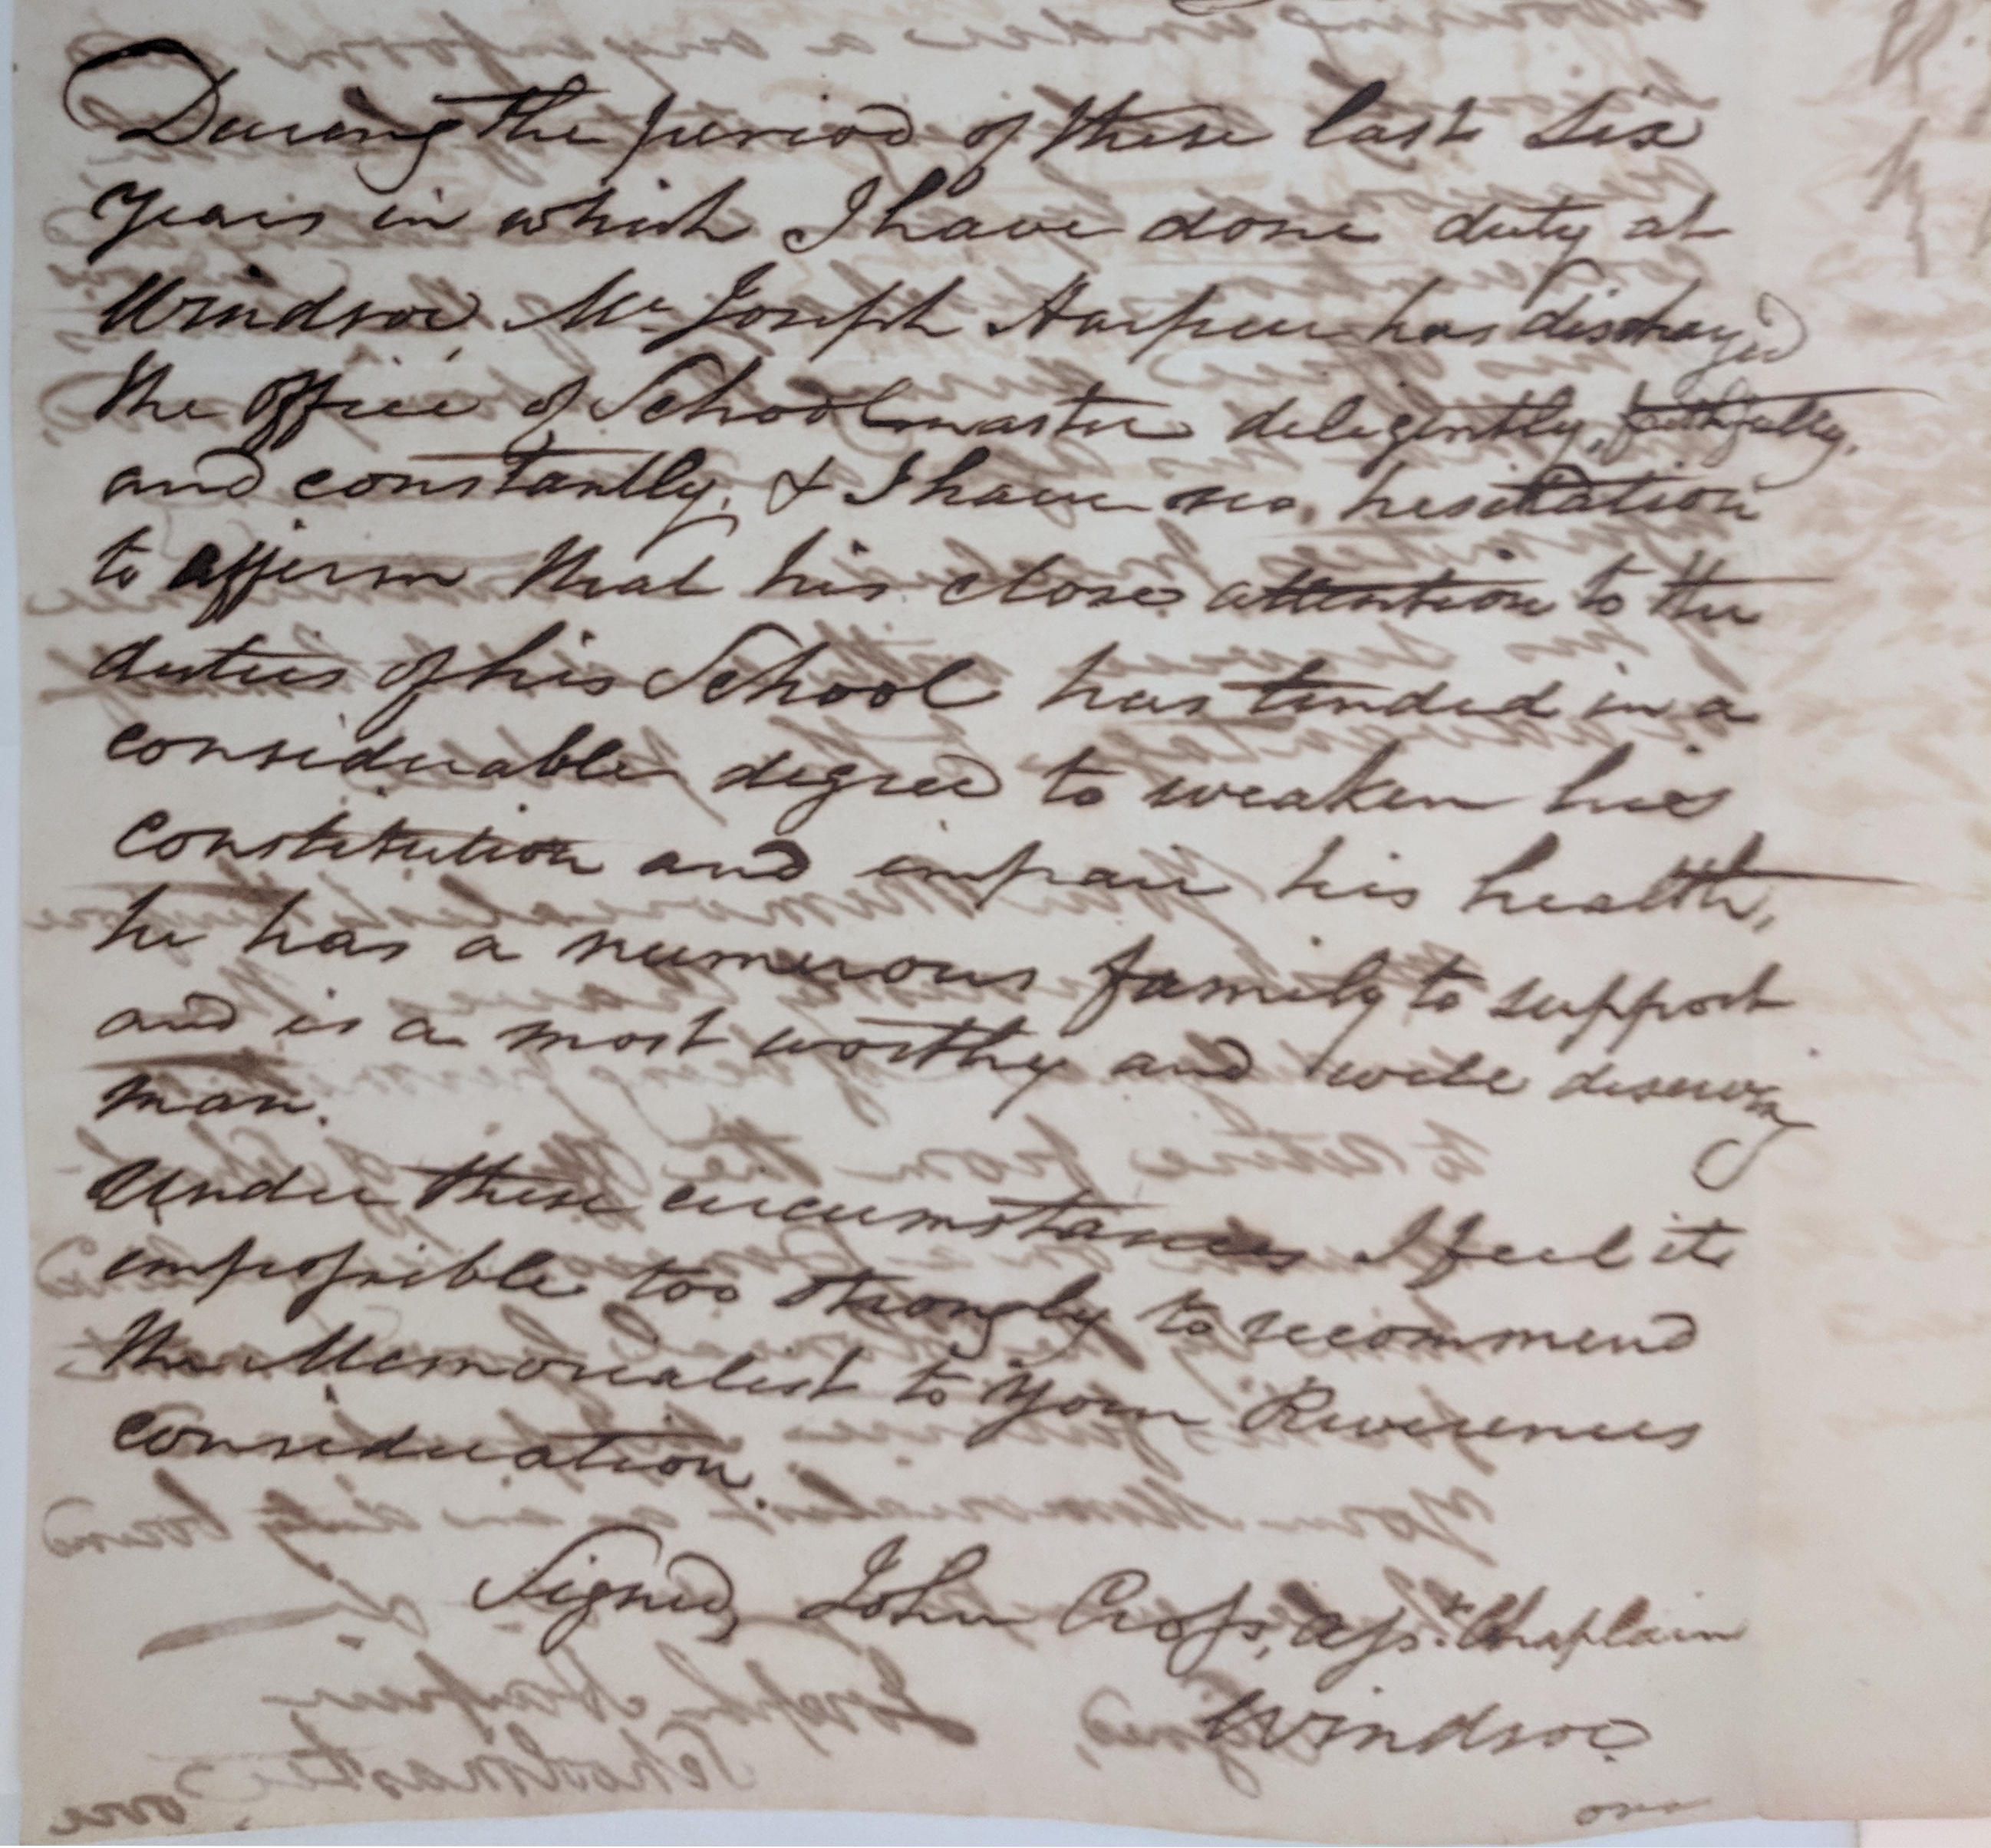 During the period of these last six
years in which I have done duty at
Windsor, Mr. Joseph Harpur has discharged
the office of Schoolmaster deligently, faithfully,
and constantly, & I have no hesitation
to affirm that his close attention to the
duties of his School has tended in a
considerable degree to weaken his
constitution and impair his health,
he has a numerous family to support
and is a most worthy and well deserving
man.
Under these circumstances I feel it
impossible too strongly to recommend
the Memorialist to your Reverences
consideration.
Signed, John Cross, Asst. Chaplain
Windsor.
over